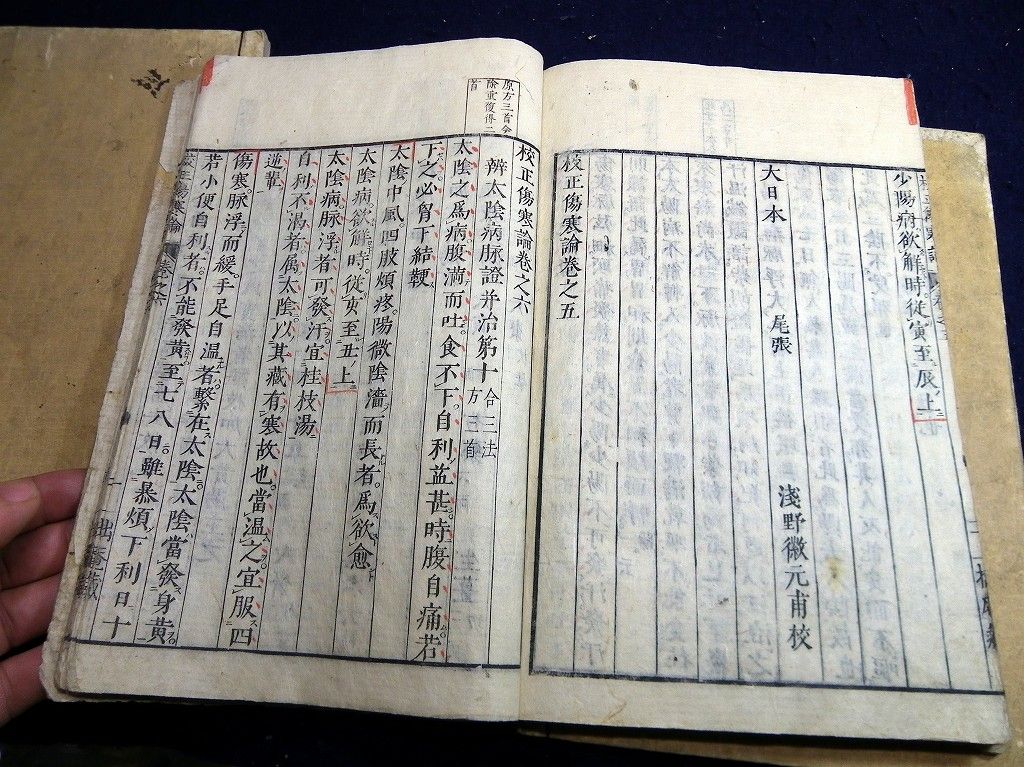 少陽病欲解時從寅至辰上
大日本 尾張 淺野徽元甫校
校正傷寒論卷之五
原方三首今
除重復得二
首
校正傷寒論卷之六
辨太陰病脉證并治第十 合三法
方三首
太陰之爲病腹滿而吐食不下自利益甚時腹自痛若
下之必胷下結鞕
太陰中風四肢煩疼陽微陰濇而長者爲欲愈
太陰病欲解時從亥至丑上
太陰病脉浮者可發汗宜桂枝湯
自利不渴者属太陰以其藏有寒故也當温之宜服四
逆輩
傷寒脉浮而緩手足自温者繫在太陰太陰當發身黄
若小便自利者不能發黄至七八日雖暴煩下利日十
校正傷寒論 卷之六